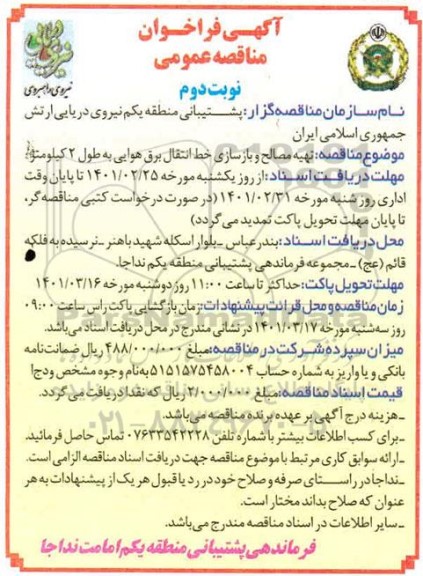 آگهی فراخوان
مناقصه عمومی
نوبت دوم
نیروی راهبردی
نام سازمان مناقصه‌گزار: پشتیبانی منطقه یکم نیروی دریایی ارتش
جمهوری اسلامی ایران
موضوع مناقصه: تهیه مصالح و بازسازی خط انتقال برق هوایی به طول ۲ کیلومتر
مهلت دریافت اسناد: از روز یکشنبه مورخه ۱۴۰۱/۰۲/۲۵ تا پایان وقت
اداری روز شنبه مورخه ۱۴۰۱/۰۲/۳۱ (در صورت درخواست کتبی مناقصه گر،
تا پایان مهلت تحویل پاکت تمدید می گردد)
محل دریافت اسناد: بندرعباس ـ بلوار اسکله شهید باهنر ـ نرسیده به فلکه
قائم (عج) ـ مجموعه فرماندهی پشتیبانی منطقه یکم نداجا.
مهلت تحویل پاکت: حداکثر تا ساعت ۱۱:۰۰ روز دوشنبه مورخه ۱۴۰۱/۰۳/۱۶
زمان مناقصه و محل قرائت پیشنهادات: زمان بازگشایی پاکت راس ساعت ۰۹:۰۰
روز سه شنبه مورخه ۱۴۰۱/۰۳/۱۷ در نشانی مندرج در محل دریافت اسناد می‌باشد.
میزان سپرده شرکت در مناقصه: مبلغ ۴۸۸/۰۰۰/۰۰۰ ریال ضمانت‌نامه
بانکی و یا واریز به شماره حساب ۵۱۵۱۵۷۵۴۵۸۰۰۴ به نام وجوه مشخص ودجا
قیمت اسناد مناقصه: مبلغ ۲/۰۰۰/۰۰۰ ریال که نقدا دریافت می گردد.
ـ هزینه درج آگهی بر عهده برنده مناقصه می‌باشد.
ـ برای کسب اطلاعات بیشتر با شماره تلفن ۰۷۶۳۳۵۴۲۲۲۸ تماس حاصل فرمائید.
ـ ارائه سوابق کاری مرتبط با موضوع مناقصه جهت دریافت اسناد مناقصه الزامی است.
ـ نداجا در راستای صرفه و صلاح خود در رد یا قبول هر یک از پیشنهادات به هر
عنوان که صلاح بداند مختار است.
ـ سایر اطلاعات در اسناد مناقصه مندرج می‌باشد.
فرماندهی پشتیبانی منطقه یکم امامت نداجا